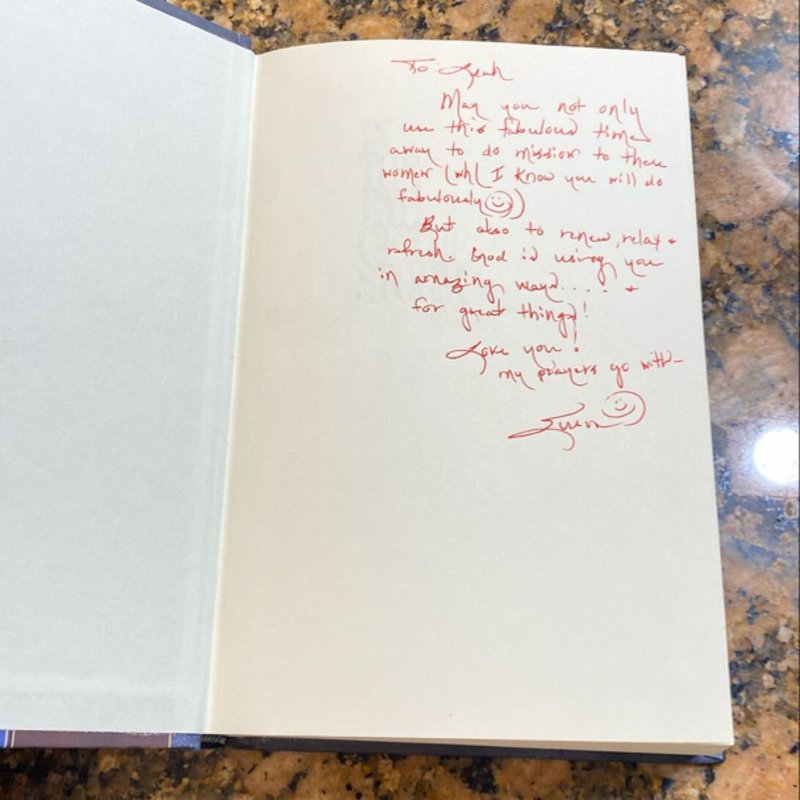 To Leah
May you not only
use this fabulous time
away to do mission to these
women (wh( I know you will do
fabulously )
But also to renew, relax +
refresh. God is using you
in amazing ways.... +
for great things!
Love you!
my prayers go with-